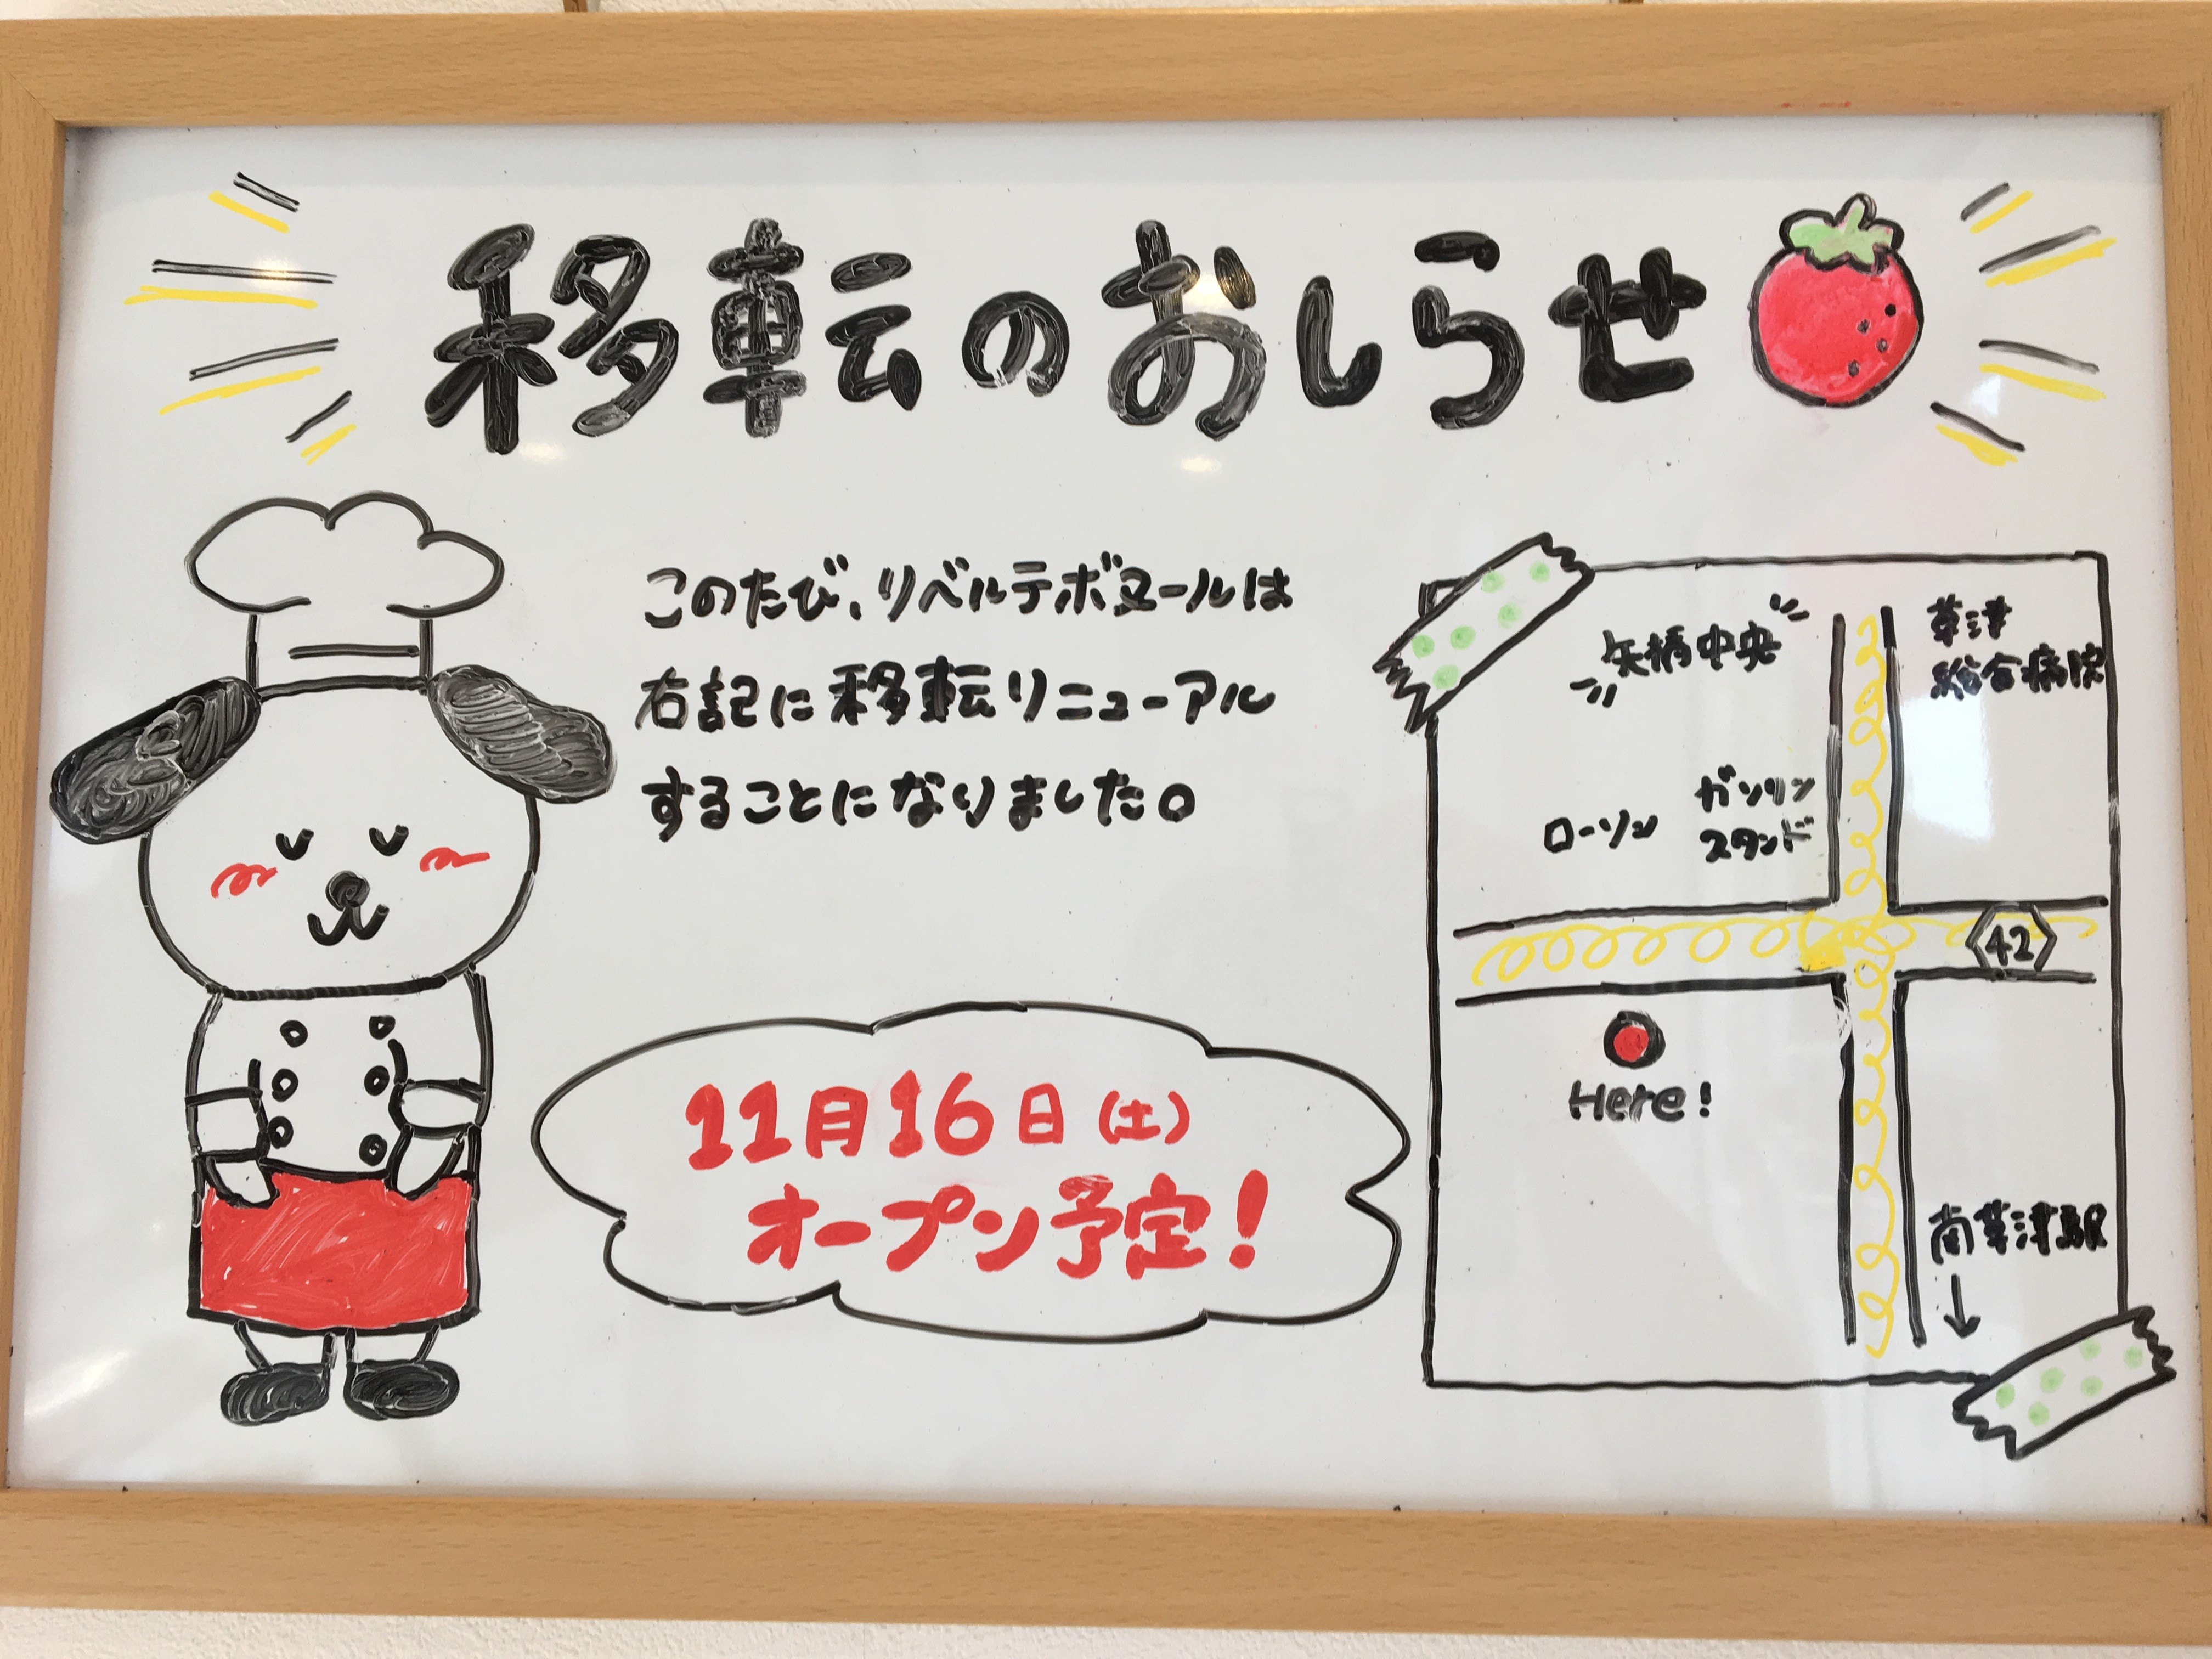 移転のおしらせ
このたび、リベルテボヌールは
右記に移転リニューアル
することになりました。
11月16日(土)
オープン予定!
矢橋中央
草津
総合病院
ローソン
ガソリン
スタンド
42
Here!
南草津駅
↓